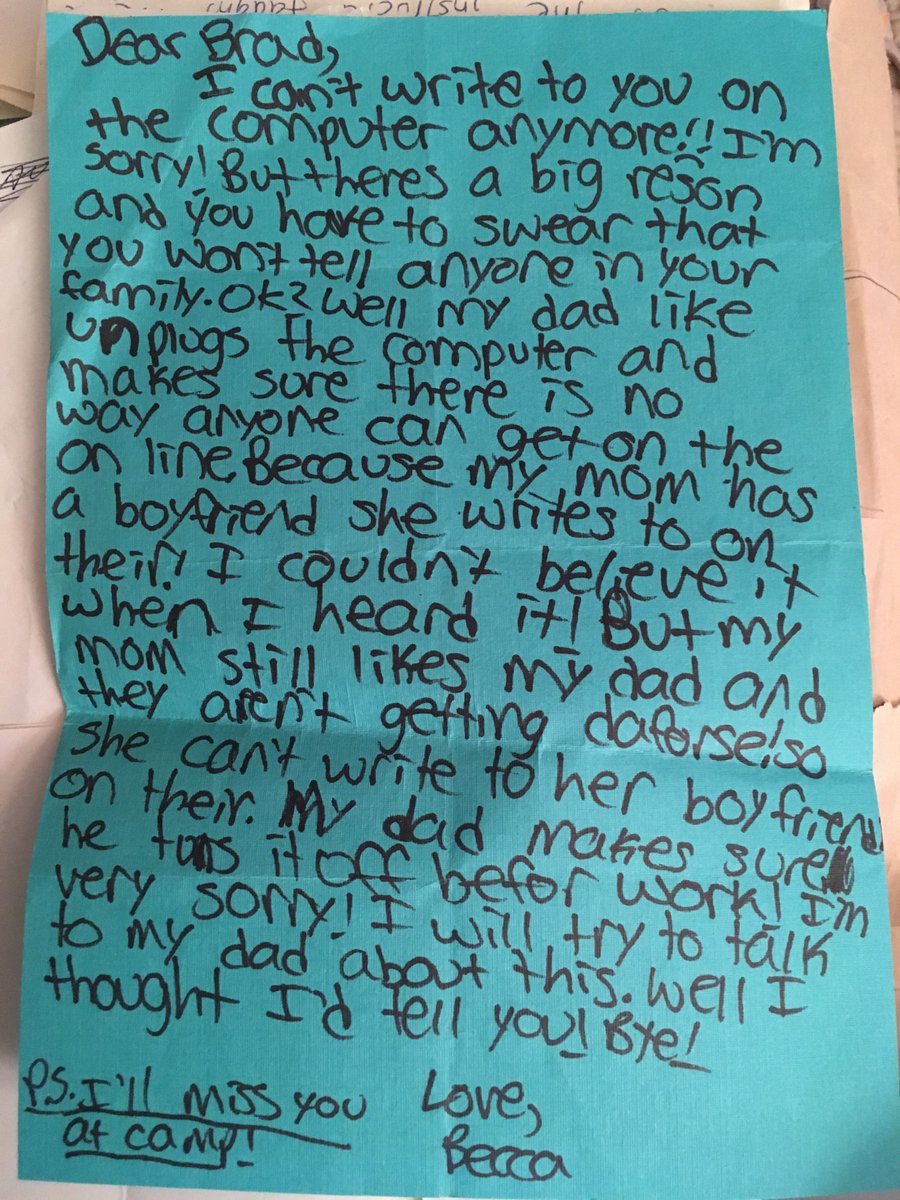 Dear Brad,
I can't write to you on
the computer anymore!! I'm
sorry! But theres a big reson
and you have to swear that
you won't tell anyone in your
family. Ok? Well my dad like
unplugs the computer and
makes sure there is no
way anyone can get on the
on line. Because my mom has
a boyfriend she writes to on
their! I couldn't believe it
when I heard it! But my
mom still likes my dad and
they aren't getting daforse! so
she can't write to her boyfriend
on their. My dad makes sure
he turns it off befor work! I'm
very sorry! I will try to talk
to my dad about this. Well I
thought I'd tell you! Bye!
P.S. I'll miss you
at camp!
Love,
Becca